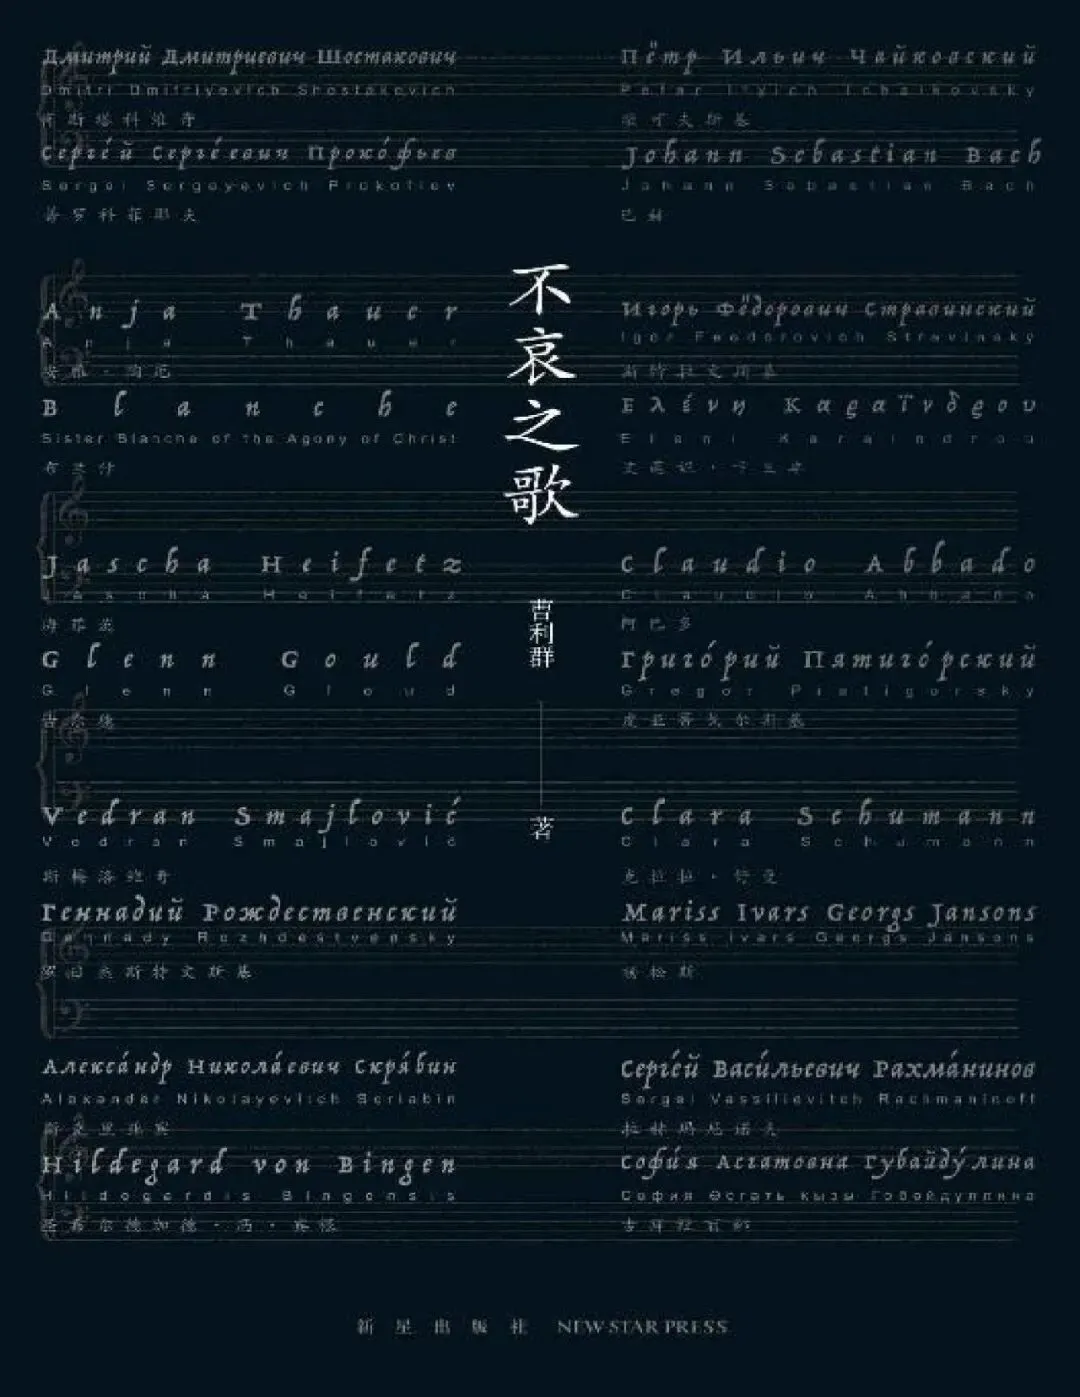 Дмитрий Дмитриевич Шостакович
Dmitri Dmitriyevich Shostakovich
肖斯塔科维奇
Серге́й Серге́евич Проко́фьев
Sergei Sergeyevich Prokofiev
普罗科菲耶夫
Anja Thauer
Anja Thauer
安雅·陶厄
Blanche
Sister Blanche of the Agony of Christ
布兰什
Jascha Heifetz
Jascha Heifetz
海菲茨
Glenn Gould
Glenn Gloud
古尔德
Vedran Smajlović
Vedran Smajlović
斯梅洛维奇
Геннадий Рождественский
Gennady Rozhdestvensky
罗日杰斯特文斯基
Алекса́ндр Никола́евич Скря́бин
Alexander Nikolayevitch Scriabin
斯克里亚宾
Hildegard von Bingen
Hildegardis Bingensis
圣希尔德加德·冯·宾根
不哀之歌
曹利群
著
Пётр Ильич Чайковский
Peter Ilyich Tchaikovsky
柴可夫斯基
Johann Sebastian Bach
Johann Sebastian Bach
巴赫
Игорь Фёдорович Стравинский
Igor Feodorovich Stravinsky
斯特拉文斯基
Ελένη Καραΐνδρου
Eleni Karaindrou
Claudio Abbado
Claudio Abbado
阿巴多
Григо́рий Пятиго́рский
Gregor Piatigorsky
皮亚蒂戈尔斯基
Clara Schumann
Clara Schumann
克拉拉·舒曼
Mariss Ivars Georgs Jansons
Mariss Ivars Georgs Jansons
杨松斯
Серге́й Васи́льевич Рахма́нинов
Sergei Vassilievitch Rachmaninoff
拉赫玛尼诺夫
Софи́я Асгатовна Губайду́лина
София Әсгать кызы Гобәйдуллина
古拜杜丽娜
新星出版社 NEW STAR PRESS